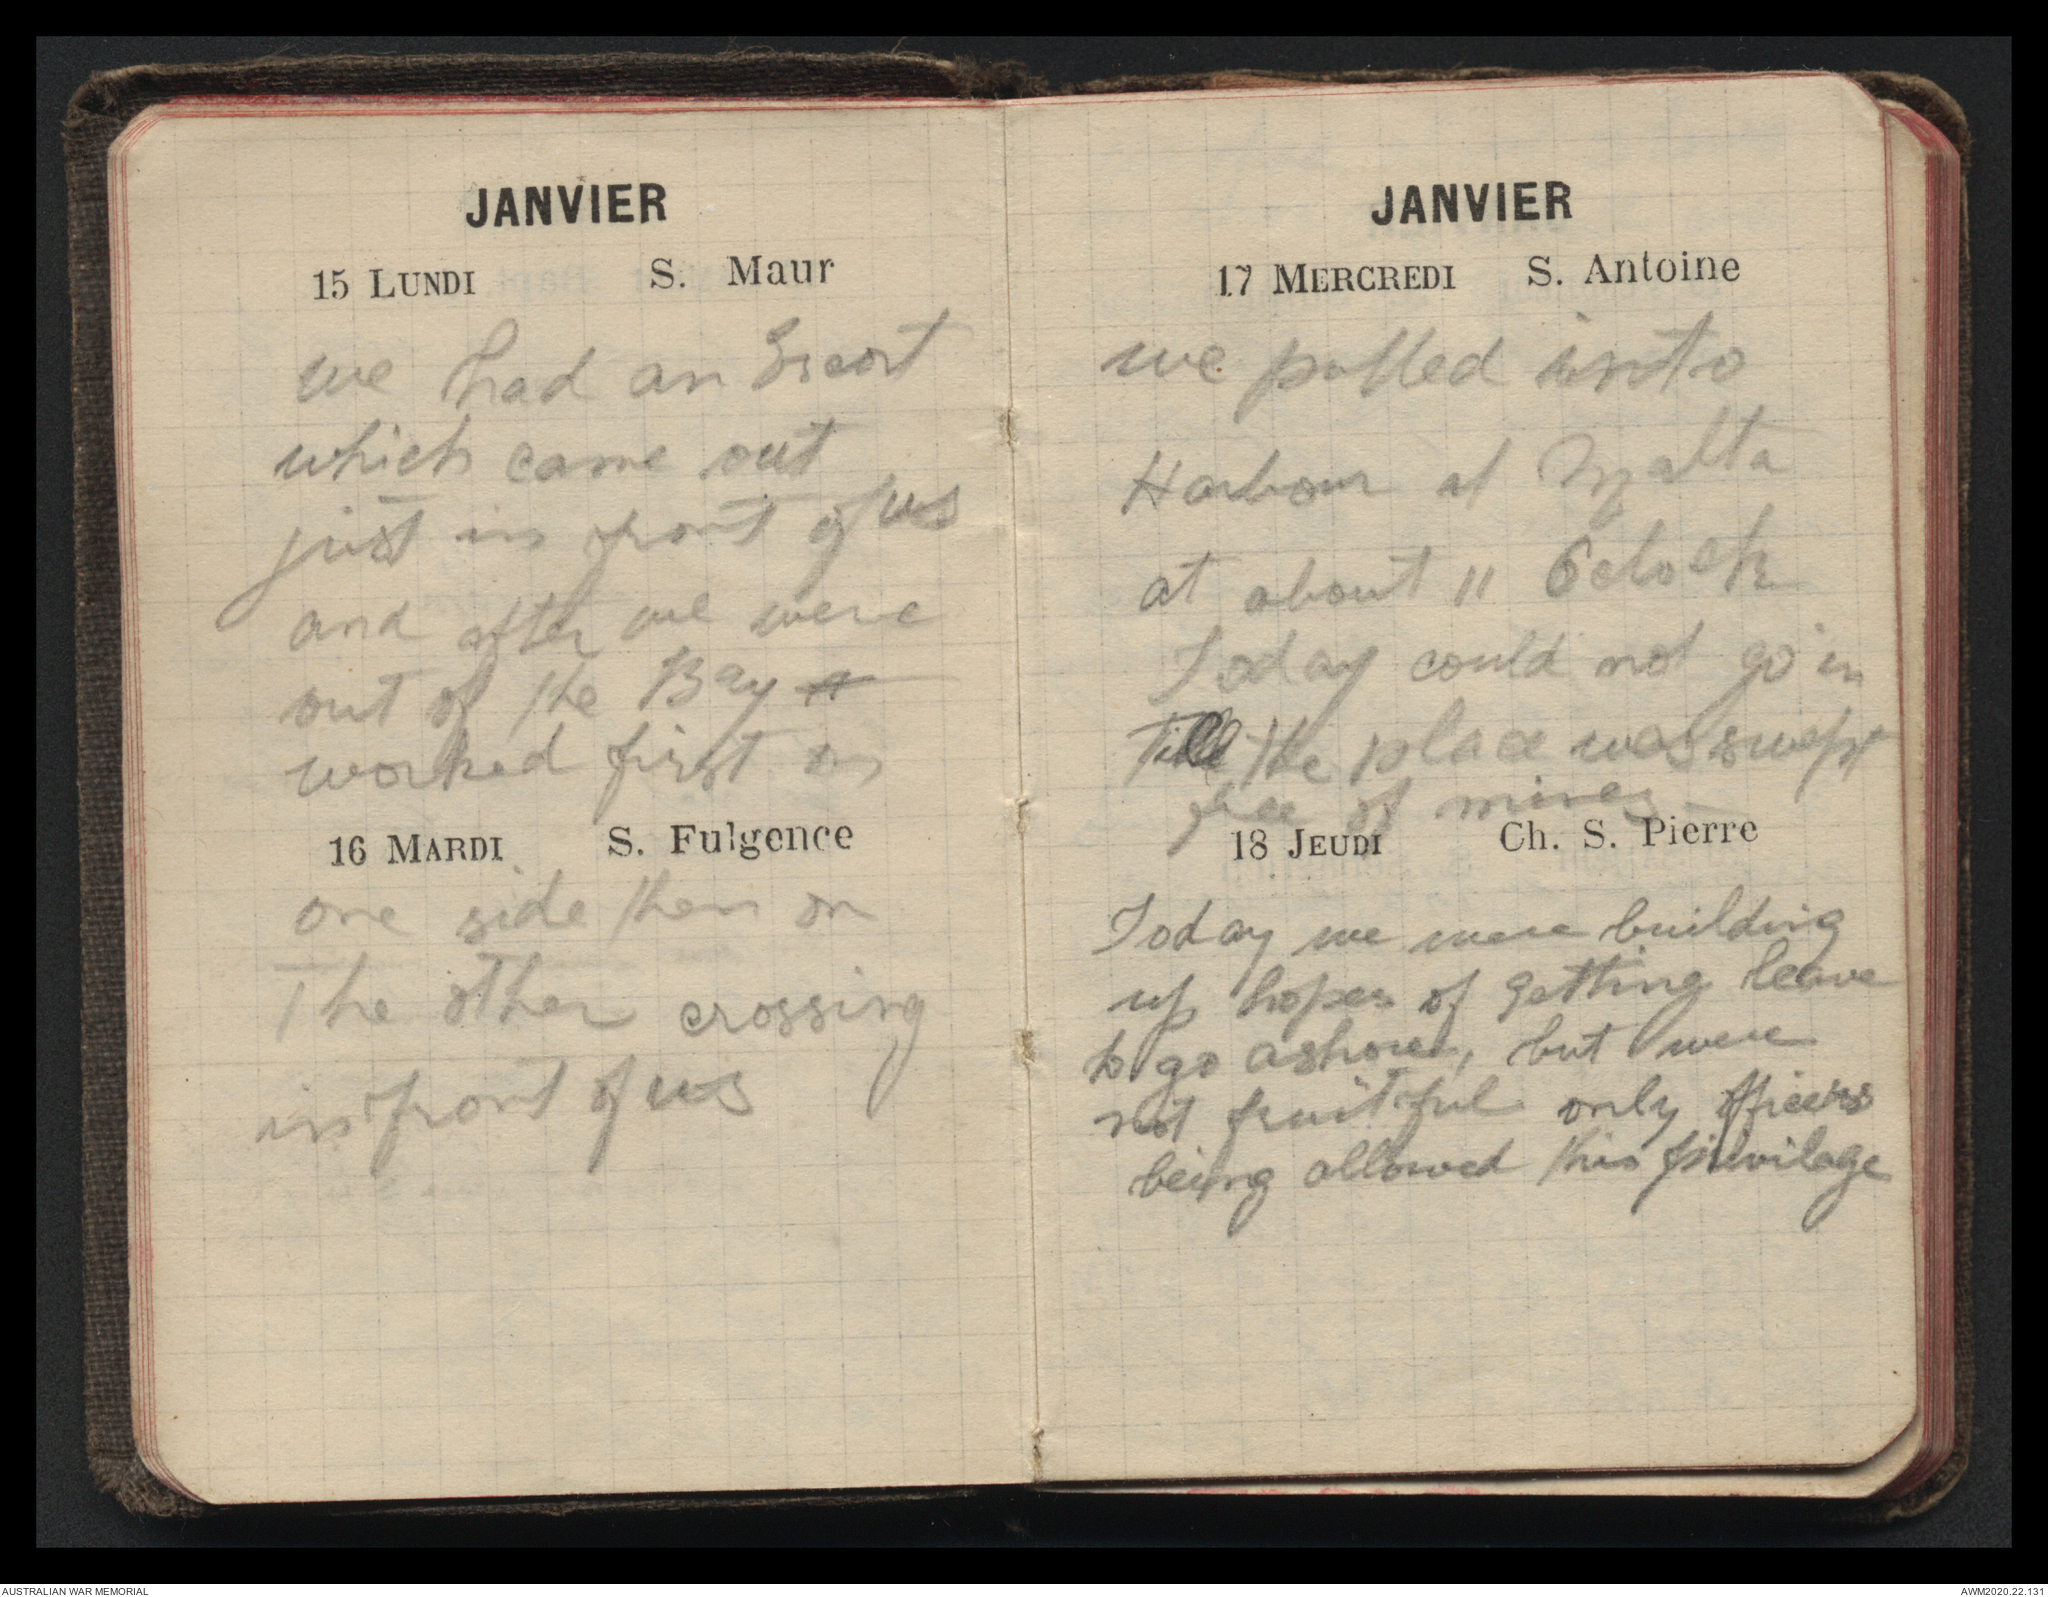 JANVIER
15 LUNDI S. Maur
we had an Escort
which came out
just in front of us
and after we were
out of the Bay
worked first on
16 MARDI S. Fulgence
one side then on
The other crossing
in front of us
JANVIER
17 MERCREDI S. Antoine
we pulled into
Harbour at Malta
at about 11 Oclock
Today could not go in
Till the place was swept
free of mines
18 JEUDI Ch. S. Pierre
Today we were building
up hopes of getting leave
to go ashore, but were
not fruitful only officers
being allowed this privilage
AUSTRALIAN WAR MEMORIAL
AWM2020.22.131